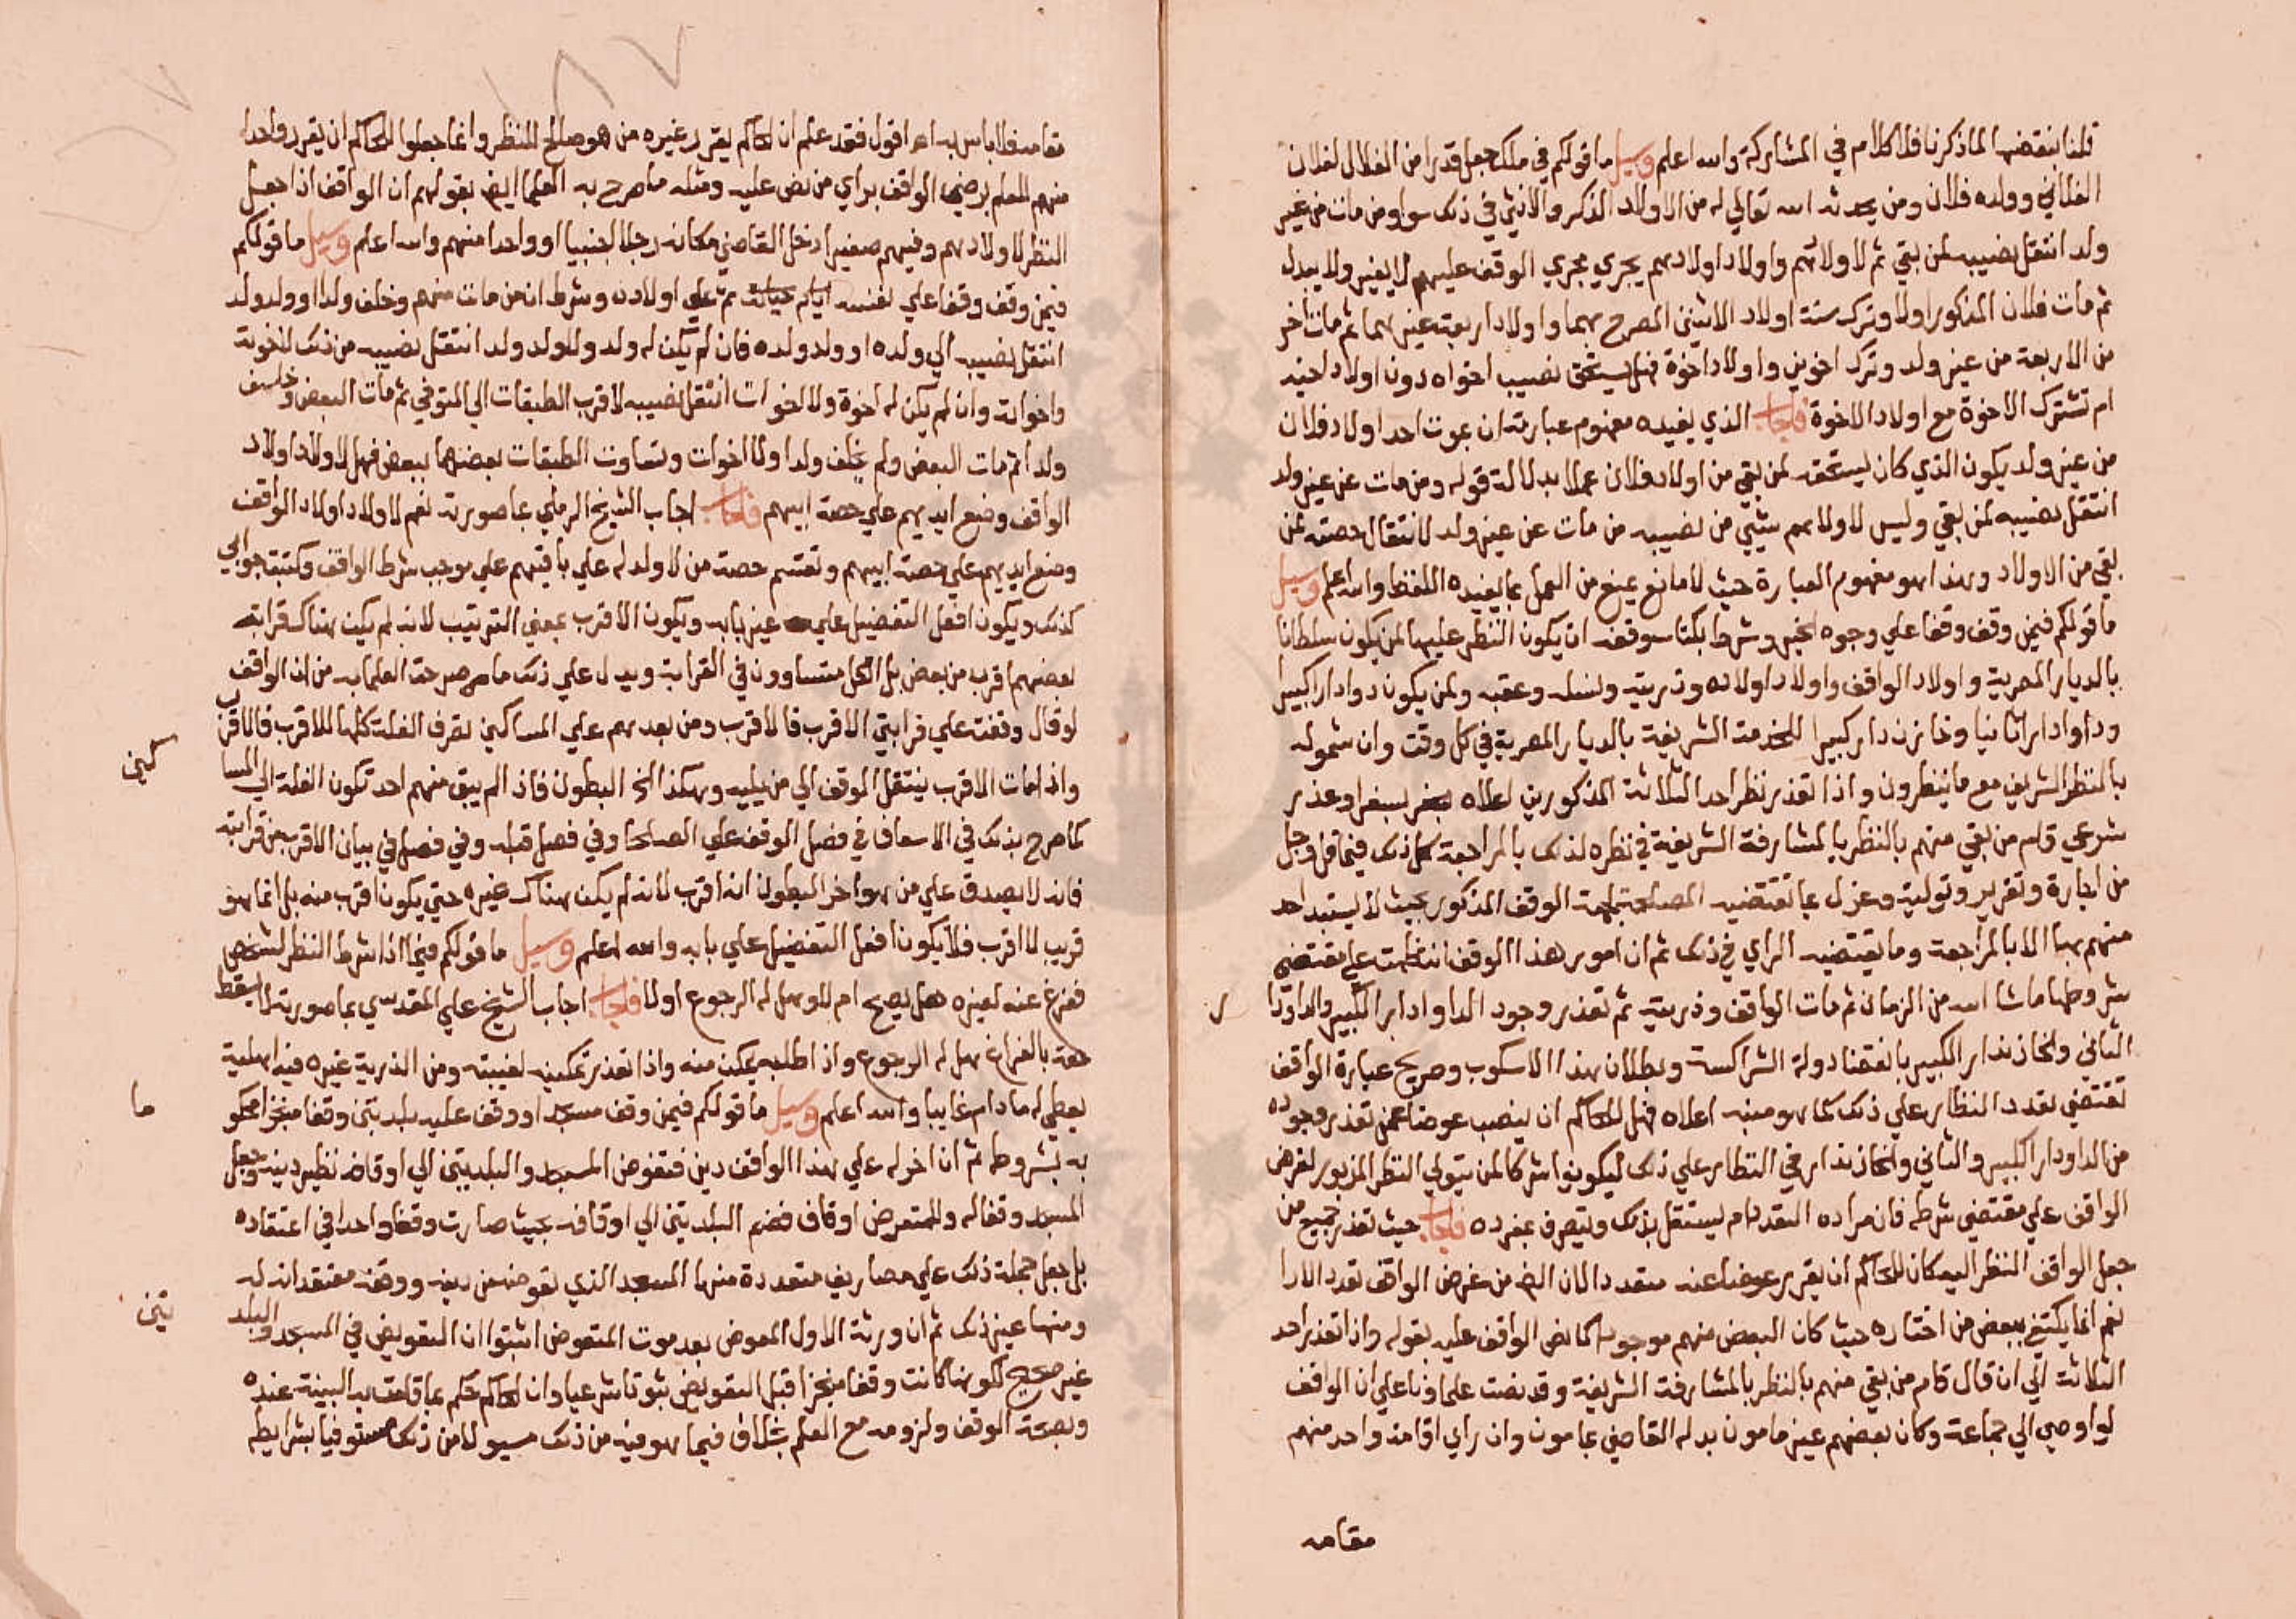 قلنا بنقضها لما ذكرنا فلا كلام في المشاركة والله اعلم وسيل ما قولكم في ملك جعل قدرا من الغلال لفلان
الفلاني وولده فلان ومن يحدثه الله تعالي له من الاولاد الذكر والانثي في ذلك سوا ومن مات من غير
ولد انتقل نصيبه لمن بقي ثم لاولادهم واولاد اولادهم يجري مجري الوقف عليهم لا يغير ولا يبدل
ثم مات فلان المذكور اولا وترك ستة اولاد الاثنين المصرح بهما واولادا اربعة غيرهما ثم مات اخر
من الاربعة من غير ولد وترك اخوين واولاد اخوة فهل يستحق نصيبه اخواه دون اولاد اخيه
ام تشترك الاخوة مع اولاد الاخوة فاجاب الذي يفيده مفهوم عبارته ان بموت احد اولاد فلان
من غير ولد يكون الذي كان يستحقه لمن بقي من اولاد فلان عملا بدلالة قوله ومن مات عن غير ولد
انتقل نصيبه لمن بقي وليس لاولادهم شيي من نصيبه من مات عن غير ولد لانتقال حصته لمن
بقي من الاولاد وهذا هو مفهوم العبارة حيث لا مانع يمنع من العمل بما يفيده اللفظ والله اعلم وسيل
ما قولكم فيمن وقف وقفا علي وجوه الخير وشرط بكتاب وقفه ان يكون النظر عليها لمن يكون سلطانا
بالديار المصرية واولاد الواقف واولاد اولاده وذريته ونسله وعقبه ولمن يكون دوادارا كبيرا
وداوادارا ثانيا وخازندار كبيرا للخدمة الشريفة بالديار المصرية في كل وقت وان شموله
بالنظر الشريف مع ما ينظرون واذا تعذر نظر احد الثلاثة المذكورين اعلاه بسفر او عذر
شرعي قام من بقي منهم بالنظر بالمشارفة الشريفة في نظره لذلك بالمراجعة كل ذلك فيما قل وجل
من اجارة وتقرير وتولية وعزل بما تقتضيه المصلحة لجهة الوقف المذكور بحيث لا يستبد احد
منهم بها الا بالمراجعة وما يقتضيه الراي في ذلك ثم ان امور هذا الوقف انتظمت علي مقتضي
شروطها ما شا الله من الزمان ثم مات الواقف وذريته ثم تعذر وجود الداوادار الكبير والداودا
ر
الثاني والخازندار الكبير بانقضا دولة الشراكسة وبطلان هذا الاسكوب وصريح عبارة الواقف
تقتضي تعدد النظار علي ذلك كما هو مبنيه اعلاه فهل للحاكم ان ينصب عوضا عمن تعذر وجوده
من الداودار الكبير والثاني والخازندار في النظار علي ذلك ليكونوا شركا لمن يتولي النظر المزبور لغرض
الواقف علي مقتضي شرطه فان مراده التعدد ام يستقل بذلك ويتصرف بمفرده فاجاب حيث تعذر جميع من
جعل الواقف النظر اليه كان للحاكم ان يقرر عوضا عنه متعددا لان الغرض من غرض الواقف تعدد الارا
نعم انما يكتفي ببعض من اختاره حيث كان البعض منهم موجودا كما نص الواقف عليه بقوله واذا تعذر احد
الثلاثة الي ان قال قام من بقي منهم بالنظر بالمشارفة الشريفة وقد نصت علماؤنا علي ان الواقف
لو اوصي الي جماعة وكان بعضهم غير مامون بدله القاضي بمامون وان راي اقامة واحد منهم
مقامه
مقامه فلا باس به اه اقول فقد علم ان الحاكم يقرر غيره من هو صالح للنظر وانما جعلوا للحاكم ان يقرر واحدا
منهم للعلم برضي الواقف براي من نص عليه ومثله ما صرح به العلما ايضا بقولهم ان الواقف اذا جعل
النظر لاولادهم وفيهم صغير ادخل القاضي مكانه رجلا اجنبيا او واحدا منهم والله اعلم وسيل ما قولكم
فيمن وقف وقفا علي نفسه ايام حياته ثم علي اولاده وشرط ان من مات منهم وخلف ولدا او ولد ولد
انتقل نصيبه الي ولده او ولد ولده فان لم يكن له ولد ولا ولد ولد انتقل نصيبه من ذلك لاخوته
واخواته وان لم يكن له اخوة ولا اخوات انتقل نصيبه لاقرب الطبقات الي المتوفي ثم مات البعض وخلف
ولدا ثم مات البعض ولم يخلف ولدا ولا اخوات وتساوت الطبقات بعضها ببعض فهل لاولاد اولاد
الواقف وضع ايديهم علي حصة ابيهم فاجاب اجاب الشيخ الرملي بما صورته نعم لاولاد اولاد الواقف
وضع ايديهم علي حصة ابيهم وتقسم حصة من لا ولد له علي باقيهم علي موجب شرط الواقف وكتبت جوابي
كذلك ويكون افعل التفضيل علي غير بابه ويكون الاقرب بمعني الترتيب لانه لم يكن هناك قرابة
بعضهم اقرب من بعض بل الكل متساوون في القرابة ويدل علي ذلك ما صرحت العلما به من ان الواقف
لو قال وقفت علي قرابتي الاقرب فالاقرب ومن بعدهم علي المساكين تصرف الغلة كلها للاقرب فالاقرب
واذا مات الاقرب ينتقل الوقف الي من يليه وهكذا الخ البطون فاذا لم يبق منهم احد تكون الغلة الي المسا
كين
كما صرح بذلك في الاسعاف في فصل الوقف علي الصلحا وفي فصل قبله وفي فصل في بيان الاقرب من قرابته
فانه لا يصدق علي من هو اخر البطون انه اقرب لانه لم يكن هناك غيره حتي يكون اقرب منه بل انما هو
قريب لا اقرب فلا يكون افعل التفضيل علي بابه والله اعلم وسيل ما قولكم فيما اذا شرط النظر لشخص
ففرغ عنه لغيره هل يصح ام لا وهل له الرجوع اولا فاجاب اجاب الشيخ علي المقدسي بما صورته لا يسقط
حقه بالفراغ بل له الرجوع واذا طلبه يمكن منه واذا تعذر تمكينه لغيبته ومن الذرية غيره فيه اهلية
يعطي له ما دام غايبا والله اعلم وسيل ما قولكم فيمن وقف مسجدا ووقف عليه بلدتين وقفا منجزا محكو
ما
به بشروطه ثم ان اخر له علي هذا الواقف دين فتعوض المسجد والبلدتين الي اوقافه نظير دينه وجعل
المسجد وقفا له وللمتعوض اوقاف فضم البلدتين الي اوقافه بحيث صارت وقفا واحدا في اعتقاده
بل جعل جملة ذلك علي مصاريف متعددة منها المسجد الذي تعوضه من دينه ووقفه معتقدا انه له
ومنها غير ذلك ثم ان ورثة الاول المعوض بعد موت المتعوض اثبتوا ان التعويض في المسجد والبلد
تين
غير صحيح لكونها كانت وقفا منجزا قبل التعويض ثبوتا شرعيا وان الحاكم حكم بما قامت به البينة عنده
وبصحة الوقف ولزومه مع العلم بالخلاف فيما هو فيه من ذلك مسيولا من ذلك مستوفيا بشرايطه